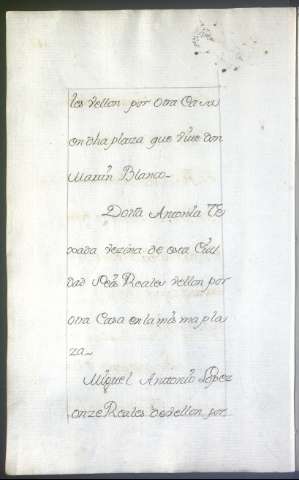 les vellon por otra Casa
en dha plaza que vive don
Martin Blanco-
Doña Antonia Te
xada vezina de esta Ciu
dad Seis Reales vellon por
otra Casa en la misma pla
za-
Miguel Antonio Lopez
onze Reales de vellon por